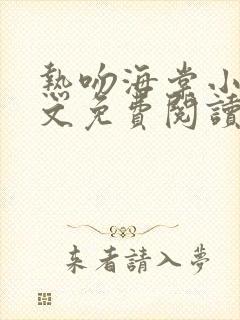 熱吻海棠小
文免費閱讀
来者請入夢